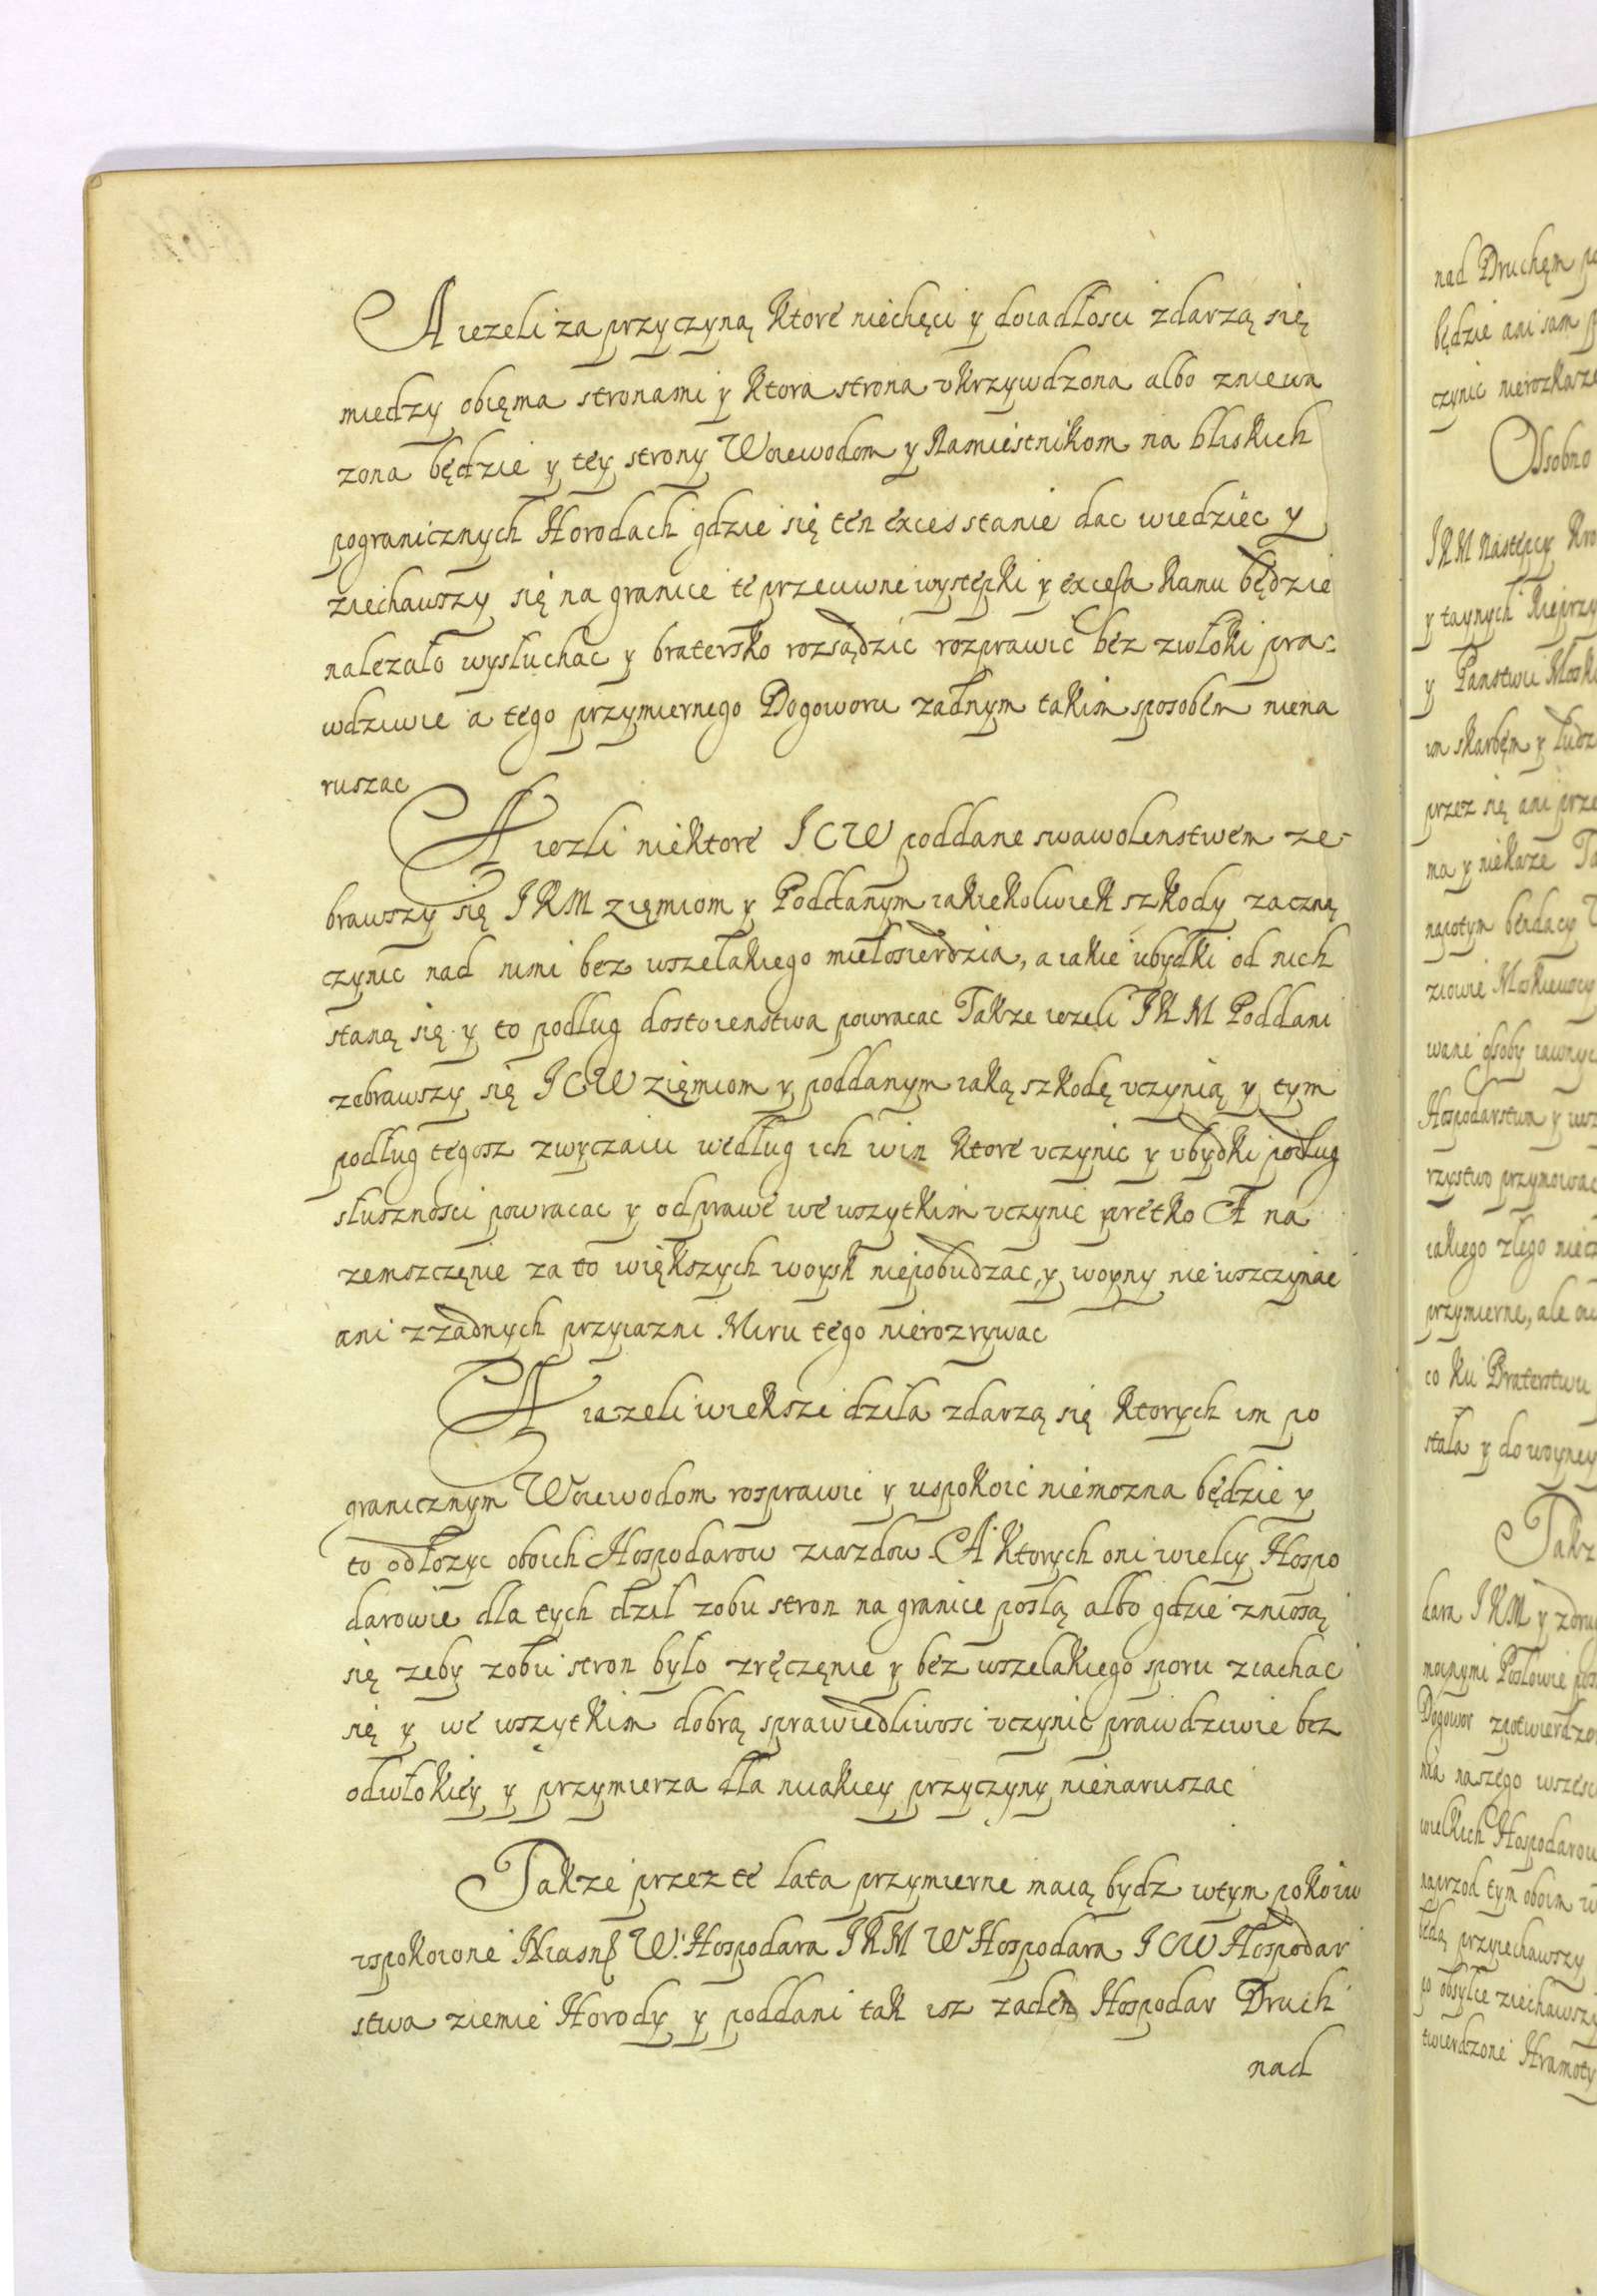 A iezeli za przyczyną ktore niechęci y doiadłosci zdarzą się
miedzy obięma stronami y ktora strona vkrzywdzona albo zniewa
zona będzie y tey strony Woiewodom y Namiestnikom na bliskich
pogranicznych Horodach gdzie się ten exces stanie dac wiedziec y
ziechawszy się na granice te przeciwne wystepki y excessa kamu będzie
nalezało wysłuchac y bratersko rozsądzic rozprawic bez zwłoki pra-
wdziwie a tego przymiernego Dogoworu zadnym takim sposobem niena
ruszac
A iezli niektore ICW poddane swawolenstwem ze-
brawszy się IKM zięmiom y Poddanym iakiekolwiek szkody zaczną
czynic nad nimi bez wszelakiego miełosierdzia, a iakie ubydki od nich
staną się y to podług dostoienstwa powracac Takze iezeli IKM Poddani
zebrawszy się ICW zięmiom y poddanym iaką szkodę vczynią y tym
podług tegosz zwyczaiu według ich win ktore vczynic y vbydki podług
słusznosci powracac y odprawe we wszytkim vczynic prętko A na
zemszczęnie za to większych woysk niepobudzac, y woyny nie wszczynac
ani z zadnych przyiazni Miru tego nierozrywac
A iazeli wieksze dzila zdarzą się ktorych im po
granicznym Woiewodom rosprawic y uspokoic niemozna będzie y
to odłozyc oboich Hospodarow ziazdow. A ktorych oni wielcy Hospo
darowie dla tych dzil zobu stron na granice poslą albo gdzie zniosą
się zeby zobu stron było zręczęnie y bez wszelakiego sporu ziachac
się y we wszytkim dobrą sprawiedliwosc vczynic prawdziwie bez
odwłokiey y przymierza dla niiakiey przyczyny nienaruszac
Takze przez te lata przymierne maią bydz wtym pokoiu
vspokoione W. Hospodara IKM W Hospodara ICW Hospodar
stwa ziemie Horody y poddani tak isz zaden Hospodar Druch
nad
nad Druchęm
będzie ani sam
czynic nierozkaze
Osobno
IKM Nastepcy
y taynych
y Panstwu
im skarbęm y
przez się ani
ma y niekaze
napotym bendacy
ziowie Moskiewscy
wane osoby iawnyc
Hospodarstwa y
rzystwo przymowac
iakiego złego
przymierne, ale
co ku Braterstwu
stała y do woyney
Takz
dara IKM y
mocnymi Posłowie
Dogowor
nia naszego
wielkich Hospodarow
naprzod tym oboim
będą przyiechawszy
po obsylce ziechawszy
twierdzone Hramoty